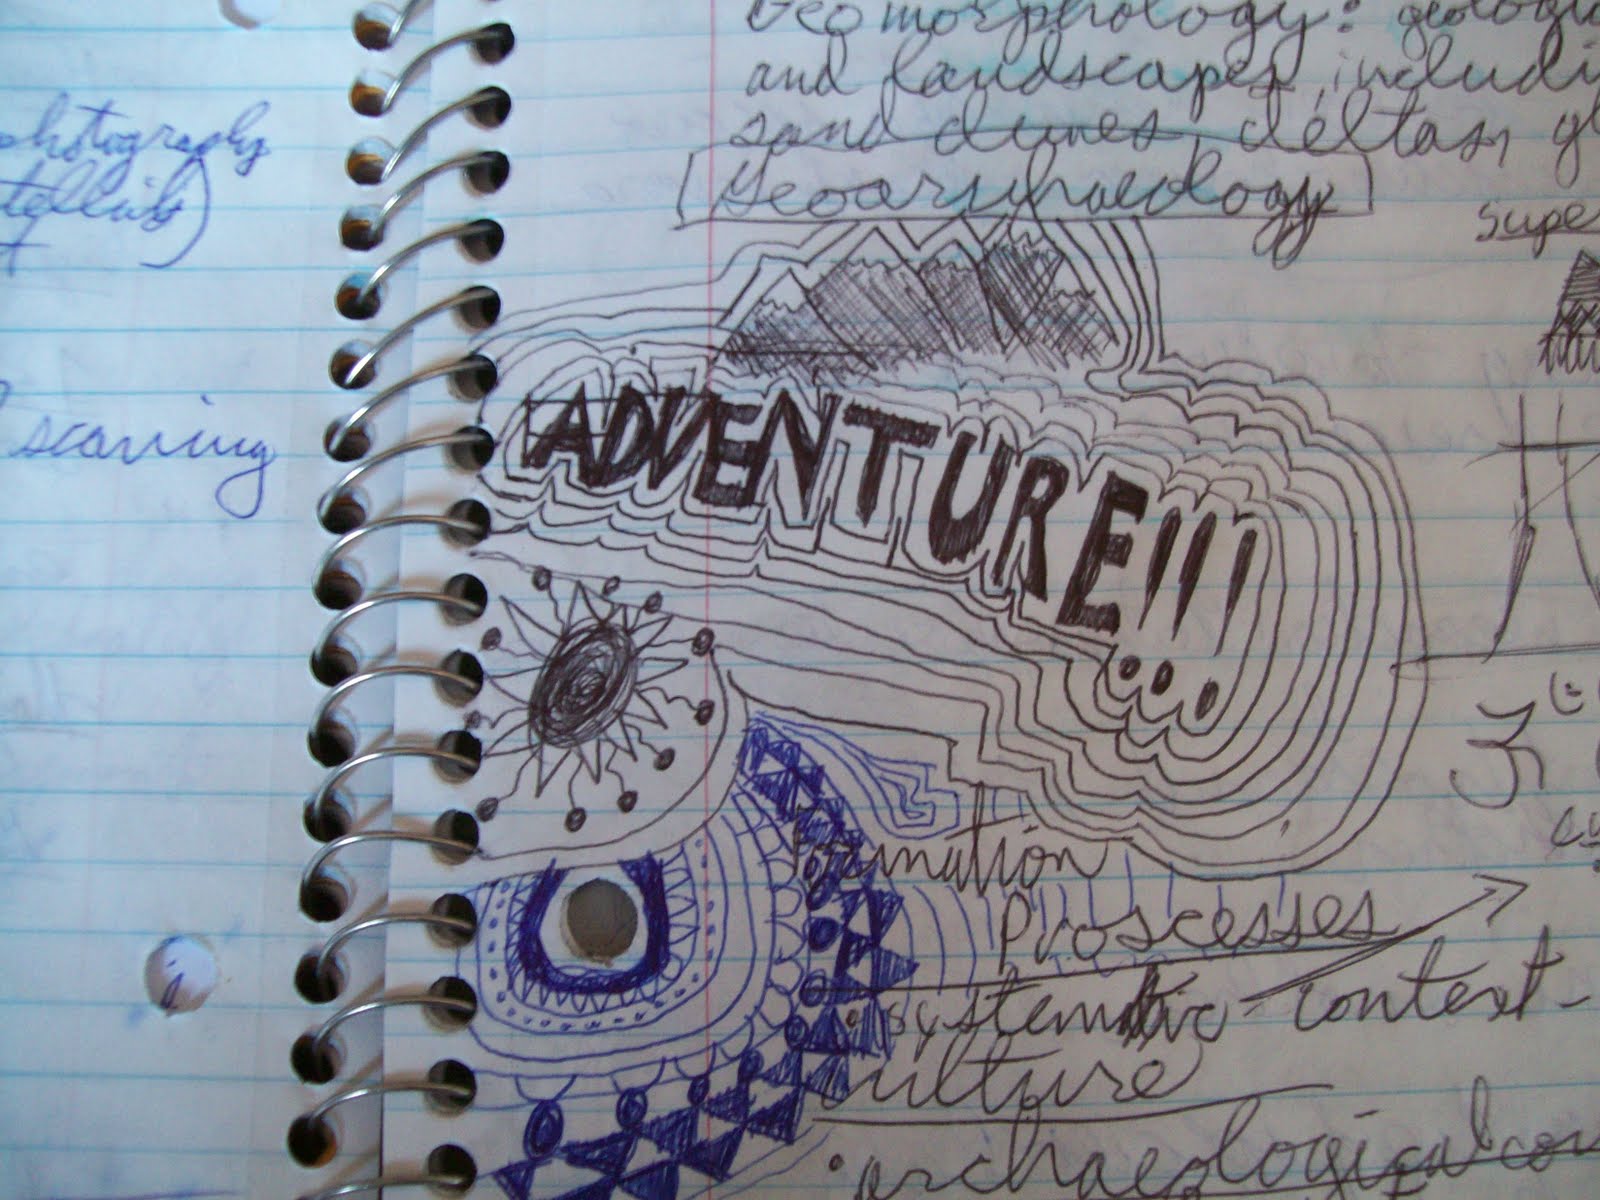 photography
scanning
Geomorphology: geologic
and landscapes, includi
sand dunes deltas, gl
Geoarchaeology
supe
ADVENTURE!!!
Formation
Proscesses
systematic context -
culture
• archaeological con